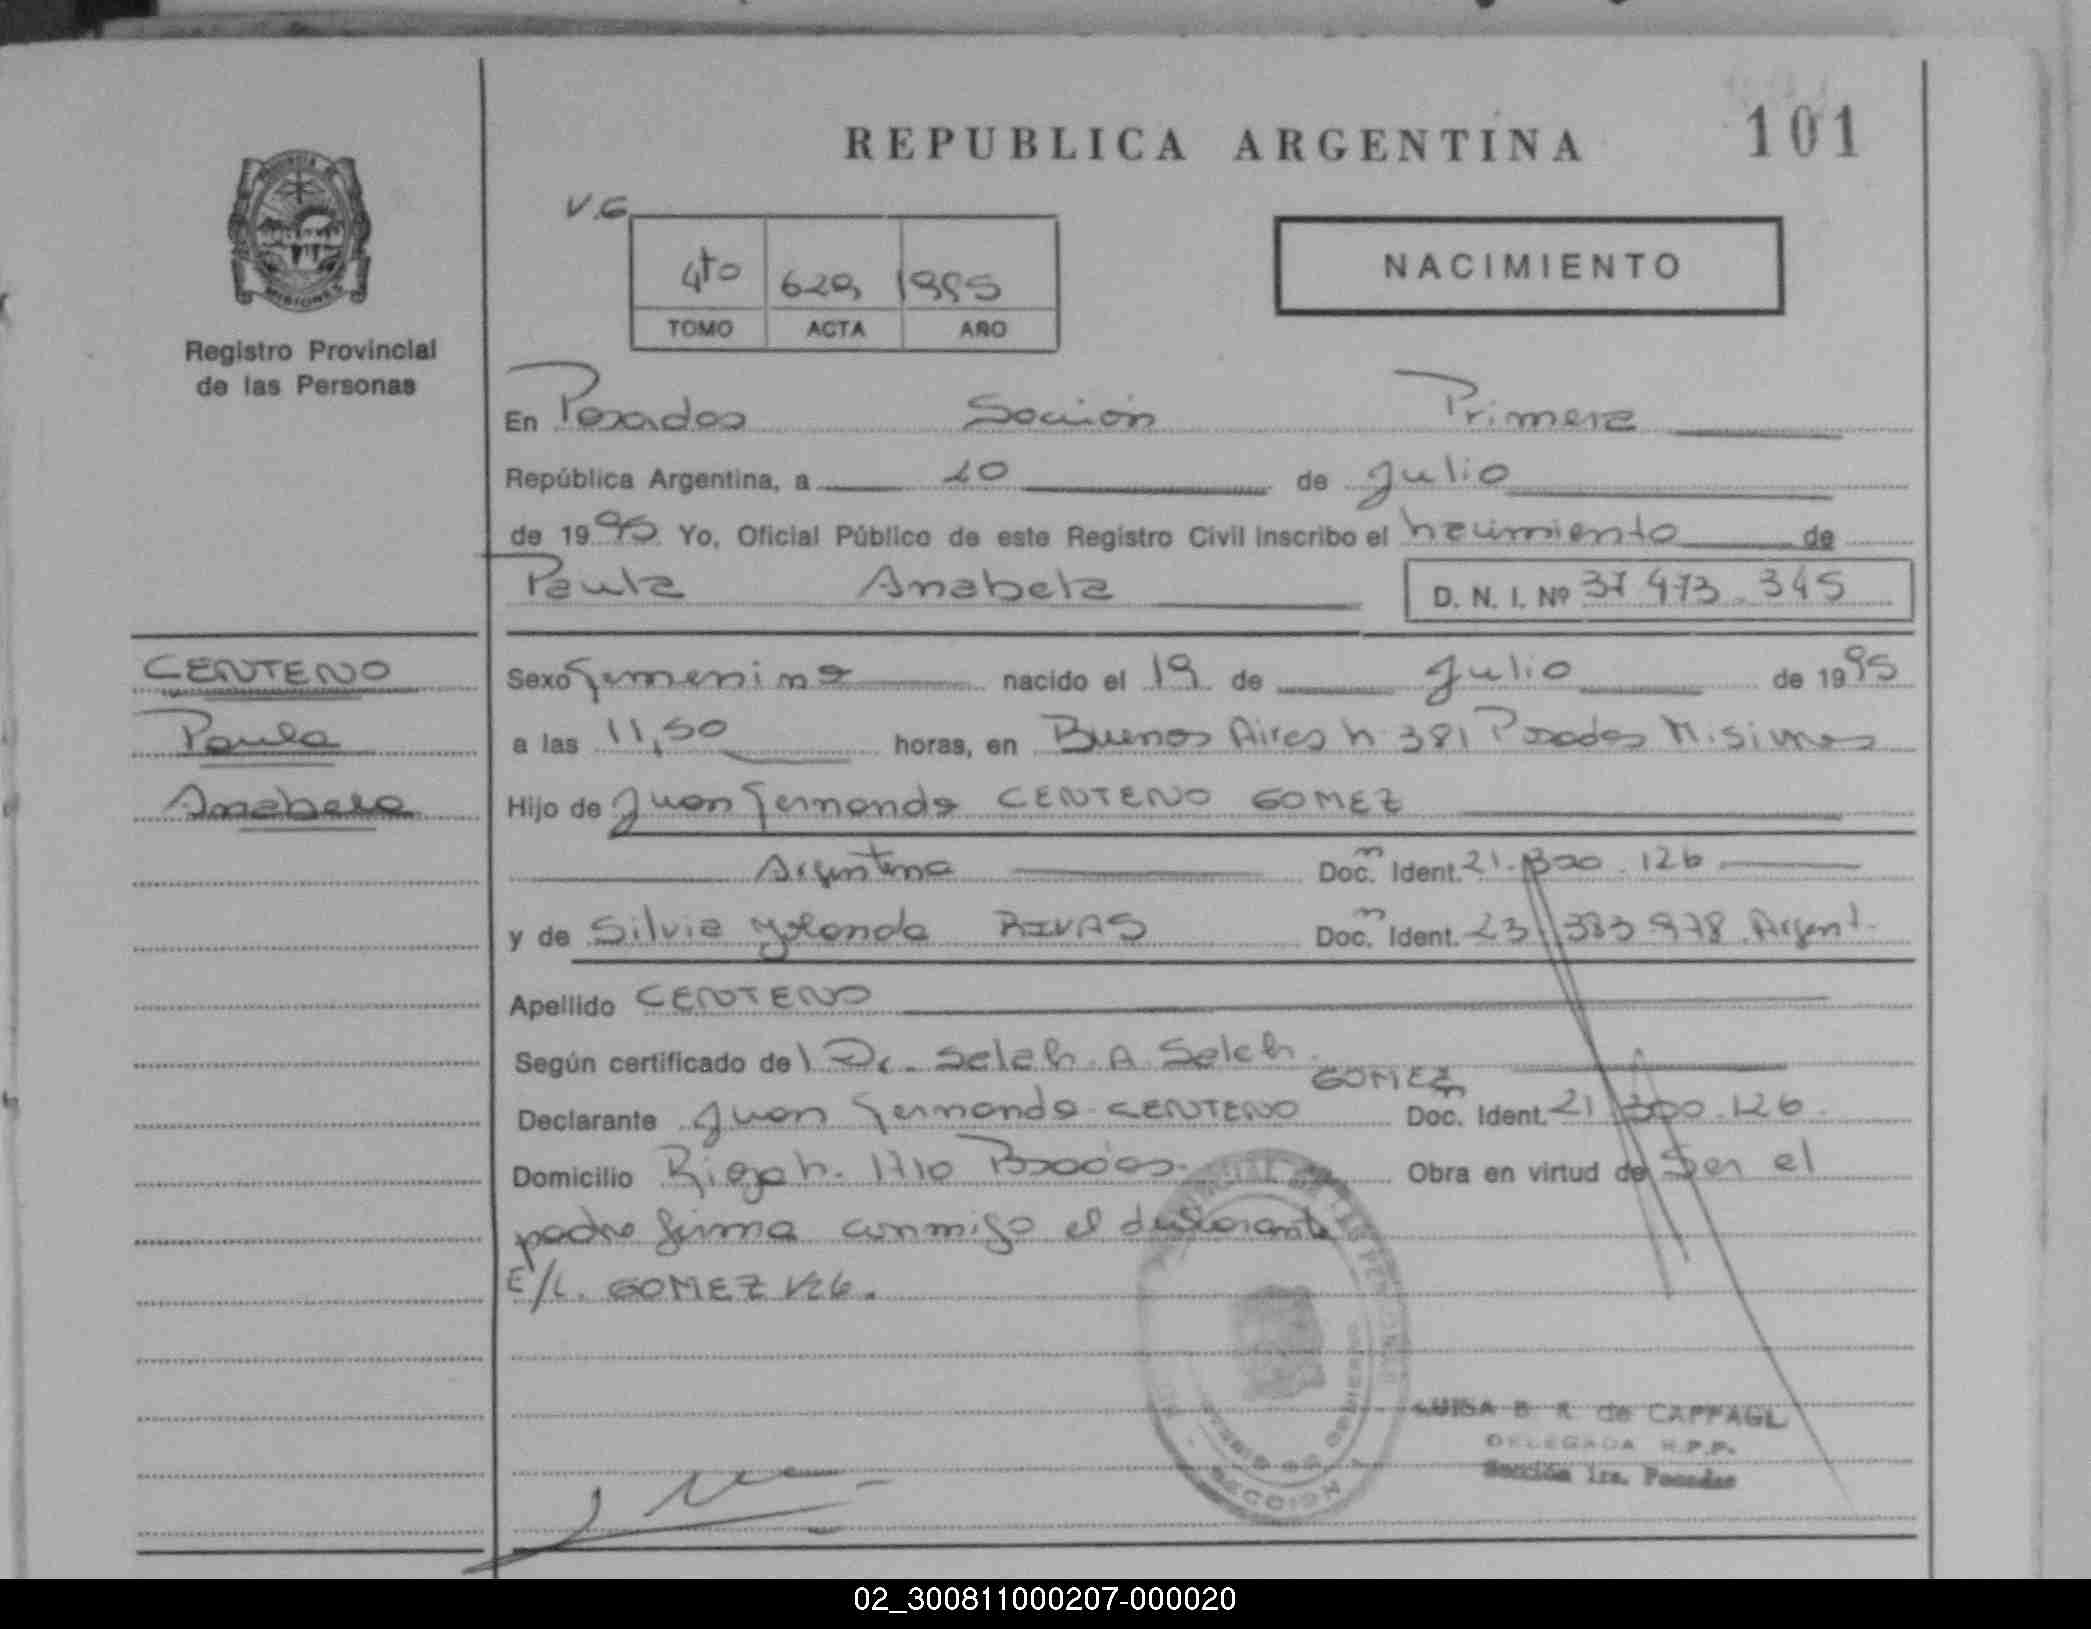 REPUBLICA ARGENTINA 101
V.G
4to 629 1995
TOMO ACTA AÑO
NACIMIENTO
MISIONES
Registro Provincial
de las Personas
En Posadas Sección Primera
República Argentina, a 20 de Julio
de 1995 Yo, Oficial Público de este Registro Civil inscribo el nacimiento de
Paula Anabela D. N. I. Nº 37 473.345
CENTENO
Paula
Anabela
Sexo femenino nacido el 19 de Julio de 1995
a las 11,50 horas, en Buenos Aires n. 381 Posadas Misiones
Hijo de Juan Fernando CENTENO GOMEZ
Argentina Doc. Ident. 21.300.126
y de Silvia Yolanda RIVAS Doc. Ident. 23 383 978. Argent.
Apellido CENTENO
Según certificado del Dr. Selah. A Selch.
GOMEZ
Declarante Juan Fernando CENTENO Doc. Ident. 21.300.126.
Domicilio Rioja n. 1710 Posadas. Obra en virtud de Ser el
padre firma conmigo el declarante
E/L. GOMEZ V26.
LUISA B. R. de CAFFAGL
DELEGADA R.P.P.
Sección 1ra. Posadas
SECCION 1
02_300811000207-000020